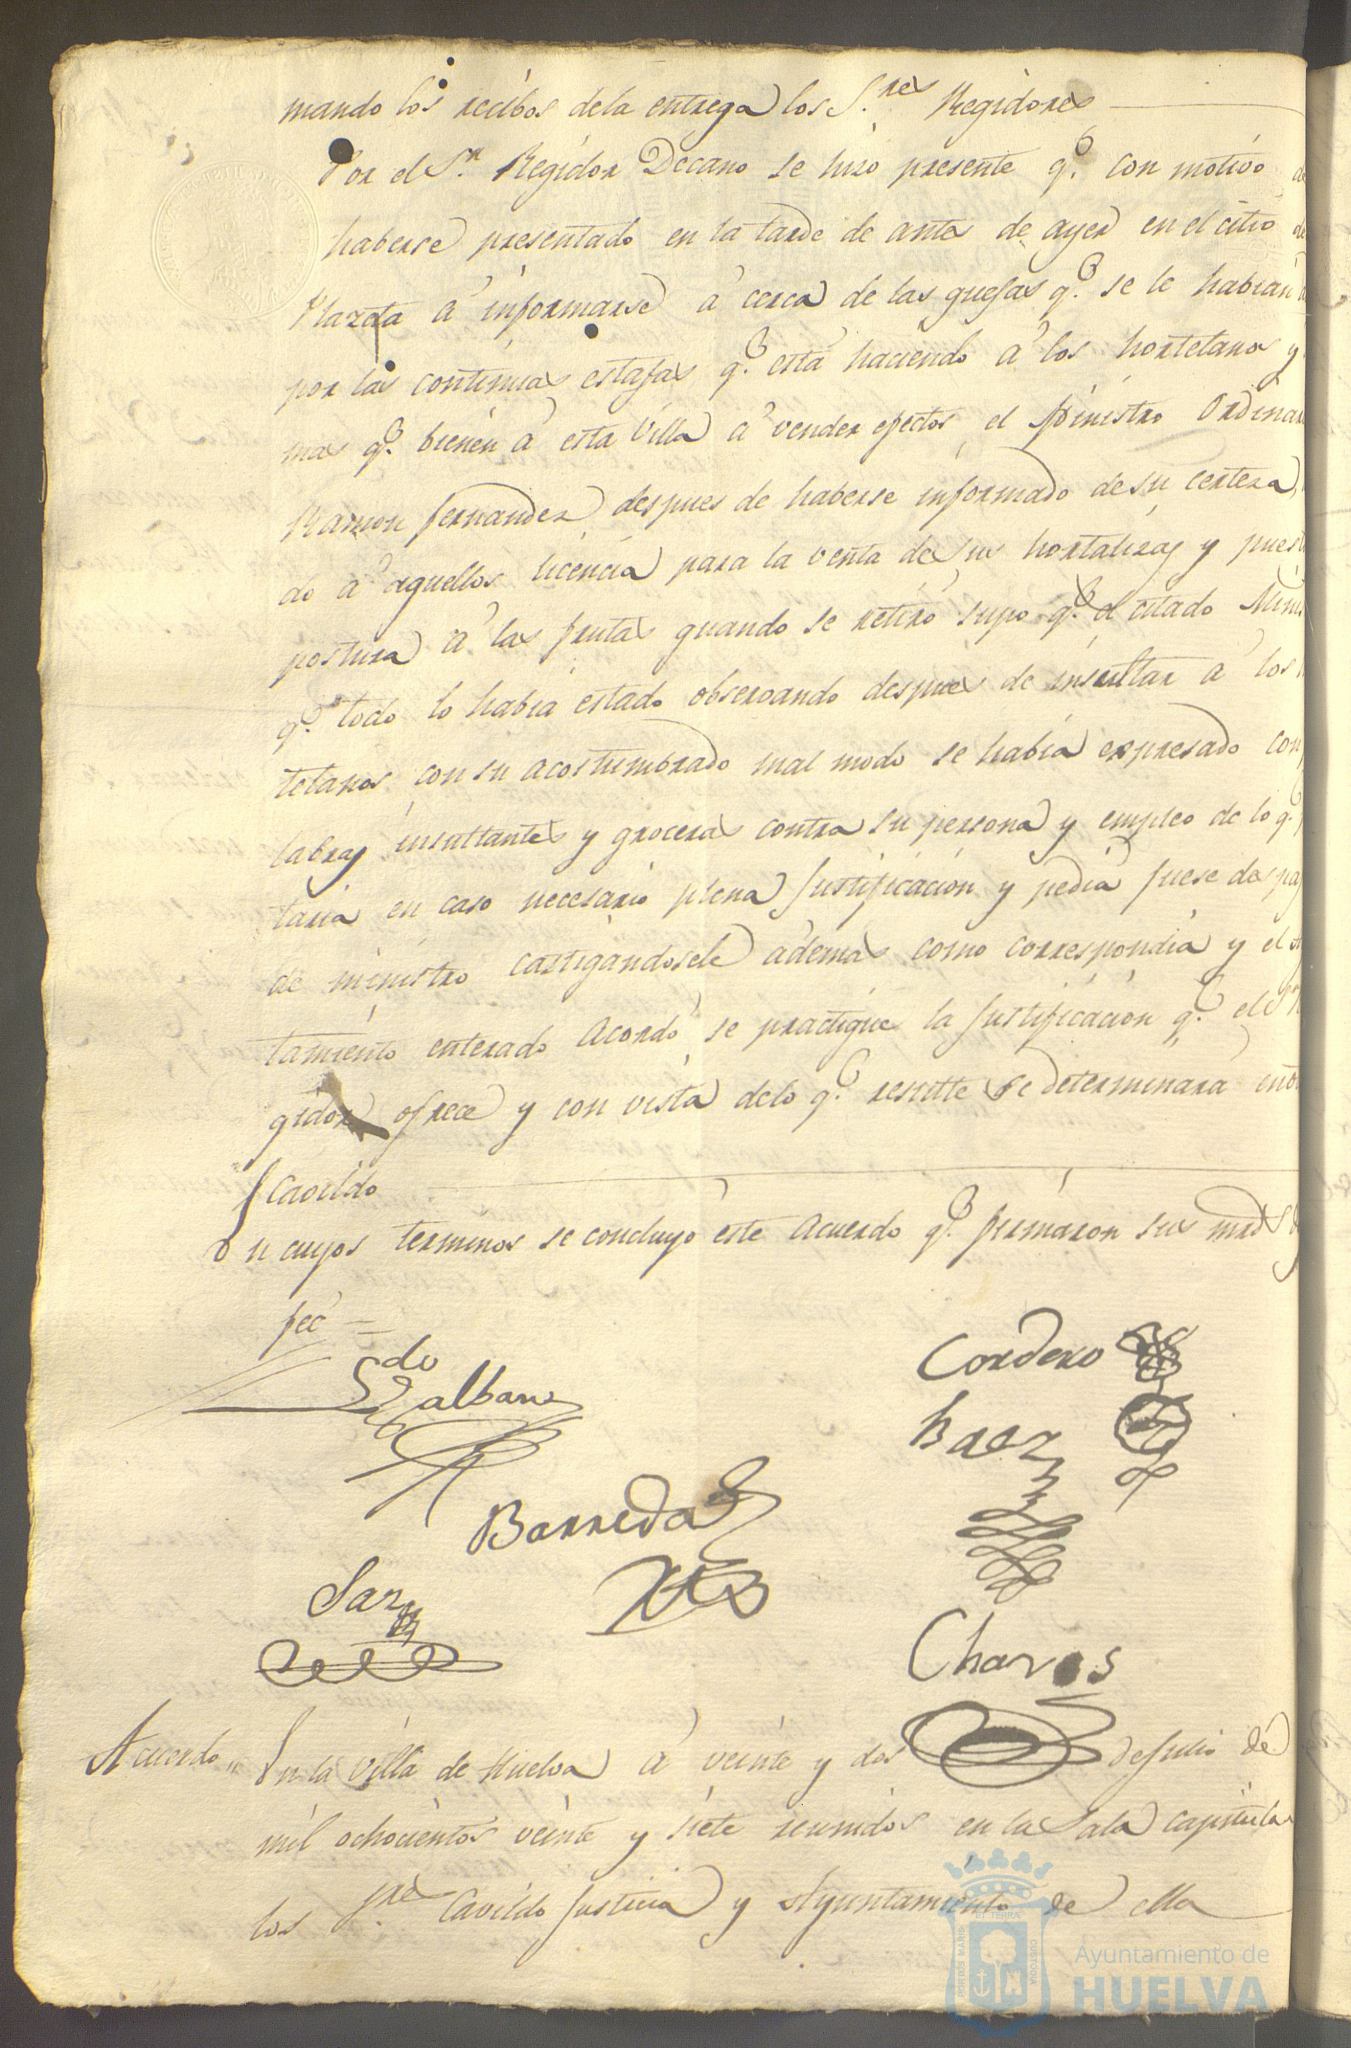 mando los recibos dela entrega los S.res Regidores
Por el S.r Regidor Decano se hizo presente q.e con motivo de
haberse presentado en la tarde de antes de ayer en el citio de
Plazeta á informarse á cerca de las quejas q.e se le habian
por las continuas estafas q.e está haciendo á los hortelanos y
mas q.e bienen á esta Villa á vender efectos, el Ministro Ordinar
Ramon Fernandez, despues de haberse informado de su certeza,
do á aquellos licencia para la venta de sus hortalizas y puest
postura á las frutas quando se retiró supo q.e el citado Minis
q.e todo lo habia estado observando despues de insultar á los
telanos con su acostumbrado mal modo se habia expresado con
labras insultantes y groceras contra su persona y empleo de lo q.e
taria en caso necesario plena justificacion y pedia fuese despa
de ministro castigandosele ademas como correspondia y el
tamiento enterado Acordó se practique la justificacion q.e el S.r
gidor ofrece y con vista delo q.e resulte se determinará en
Cavildo
En cuyos terminos se concluyó este Acuerdo q.e firmaron sus mrds
feé =
Ldo
Zalbans
Cordero
Baez
Barreda
Saez
Chaves
Acuerdo,, En la Villa de Huelva á veinte y dos de Julio de
mil ochocientos veinte y siete reunidos en la Sala capitular
los S.res Cavildo Justicia y Ayuntamiento de ella
Ayuntamiento de
HUELVA